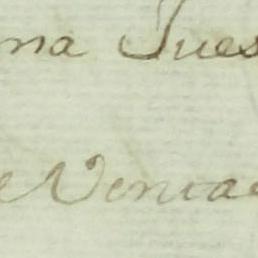 na Jues
e Venta